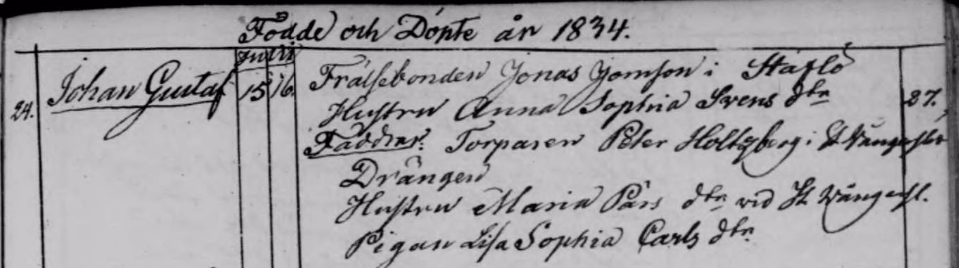 Födde och Döpte år 1834.
Juni
24. Johan Gustaf 15 16. Frälsebonden Jonas Jonsson i Staflö
Hustru Anna Sophia Svens dtr 37.
Faddrar: Torparen Peter Holtzberg i St Vångerslät
Drängen
Hustru Maria Pärs dtr vid St Vångersl.
Pigan Lisa Sophia Carls dtr